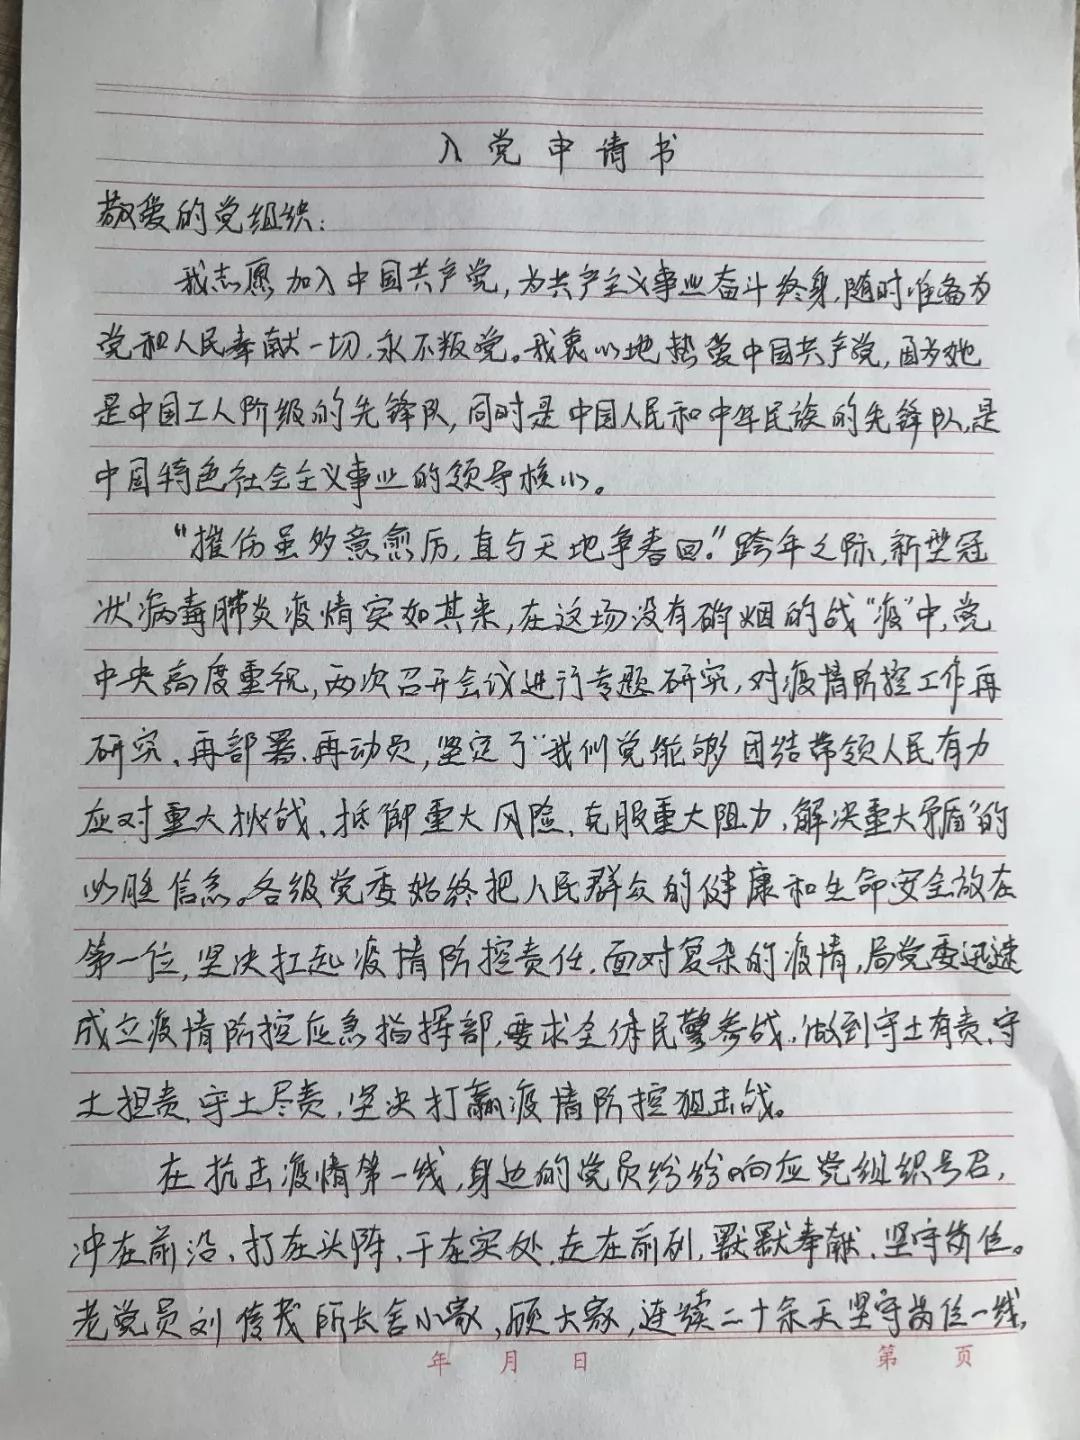 入党申请书
敬爱的党组织：
我志愿加入中国共产党，为共产主义事业奋斗终身，随时准备为
党和人民奉献一切，永不叛党。我衷心地热爱中国共产党，因为她
是中国工人阶级的先锋队，同时是中国人民和中华民族的先锋队，是
中国特色社会主义事业的领导核心。
“摧伤虽多意愈厉，直与天地争春回。”跨年之际，新型冠
状病毒肺炎疫情突如其来，在这场没有硝烟的战“疫”中，党
中央高度重视，两次召开会议进行专题研究，对疫情防控工作再
研究、再部署、再动员，坚定了“我们党能够团结带领人民有力
应对重大挑战、抵御重大风险、克服重大阻力、解决重大矛盾”的
必胜信念。各级党委始终把人民群众的健康和生命安全放在
第一位，坚决扛起疫情防控责任。面对复杂的疫情，局党委迅速
成立疫情防控应急指挥部，要求全体民警参战，做到守土有责、守
土担责、守土尽责，坚决打赢疫情防控狙击战。
在抗击疫情第一线，身边的党员纷纷响应党组织号召，
冲在前沿、打在头阵、干在实处、走在前列，默默奉献、坚守岗位。
老党员刘传茂所长舍小家，顾大家，连续二十余天坚守岗位一线，
年 月 日 第 页